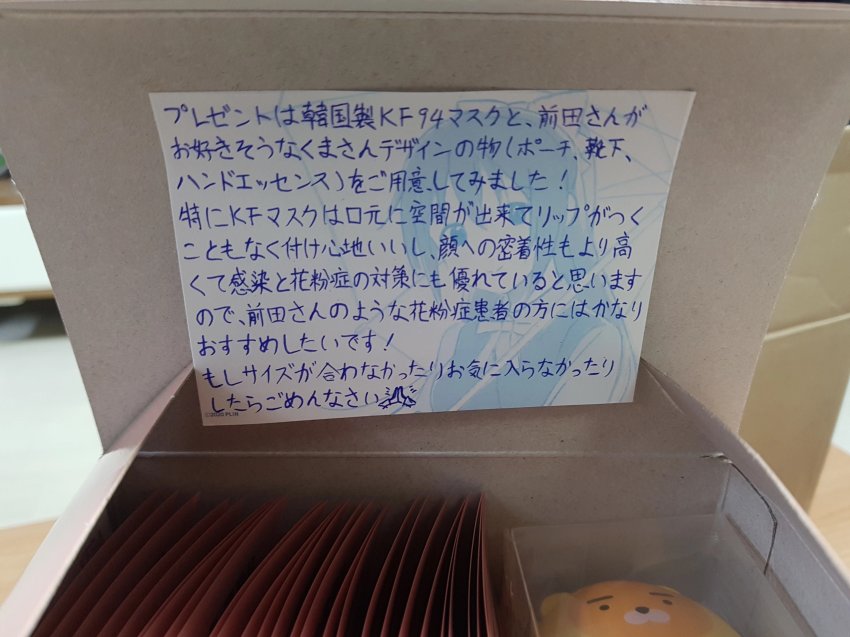 プレゼントは韓国製KF94マスクと、前田さんが
お好きそうなくまさんデザインの物(ポーチ、靴下、
ハンドエッセンス)をご用意してみました!
特にKFマスクは口元に空間が出来てリップがつく
こともなく付け心地いいし、顔への密着性もより高
くて感染と花粉症の対策にも優れていると思います
ので、前田さんのような花粉症患者の方にはかなり
おすすめしたいです!
もしサイズが合わなかったりお気に入らなかったり
したらごめんなさい
©2020 PLIN